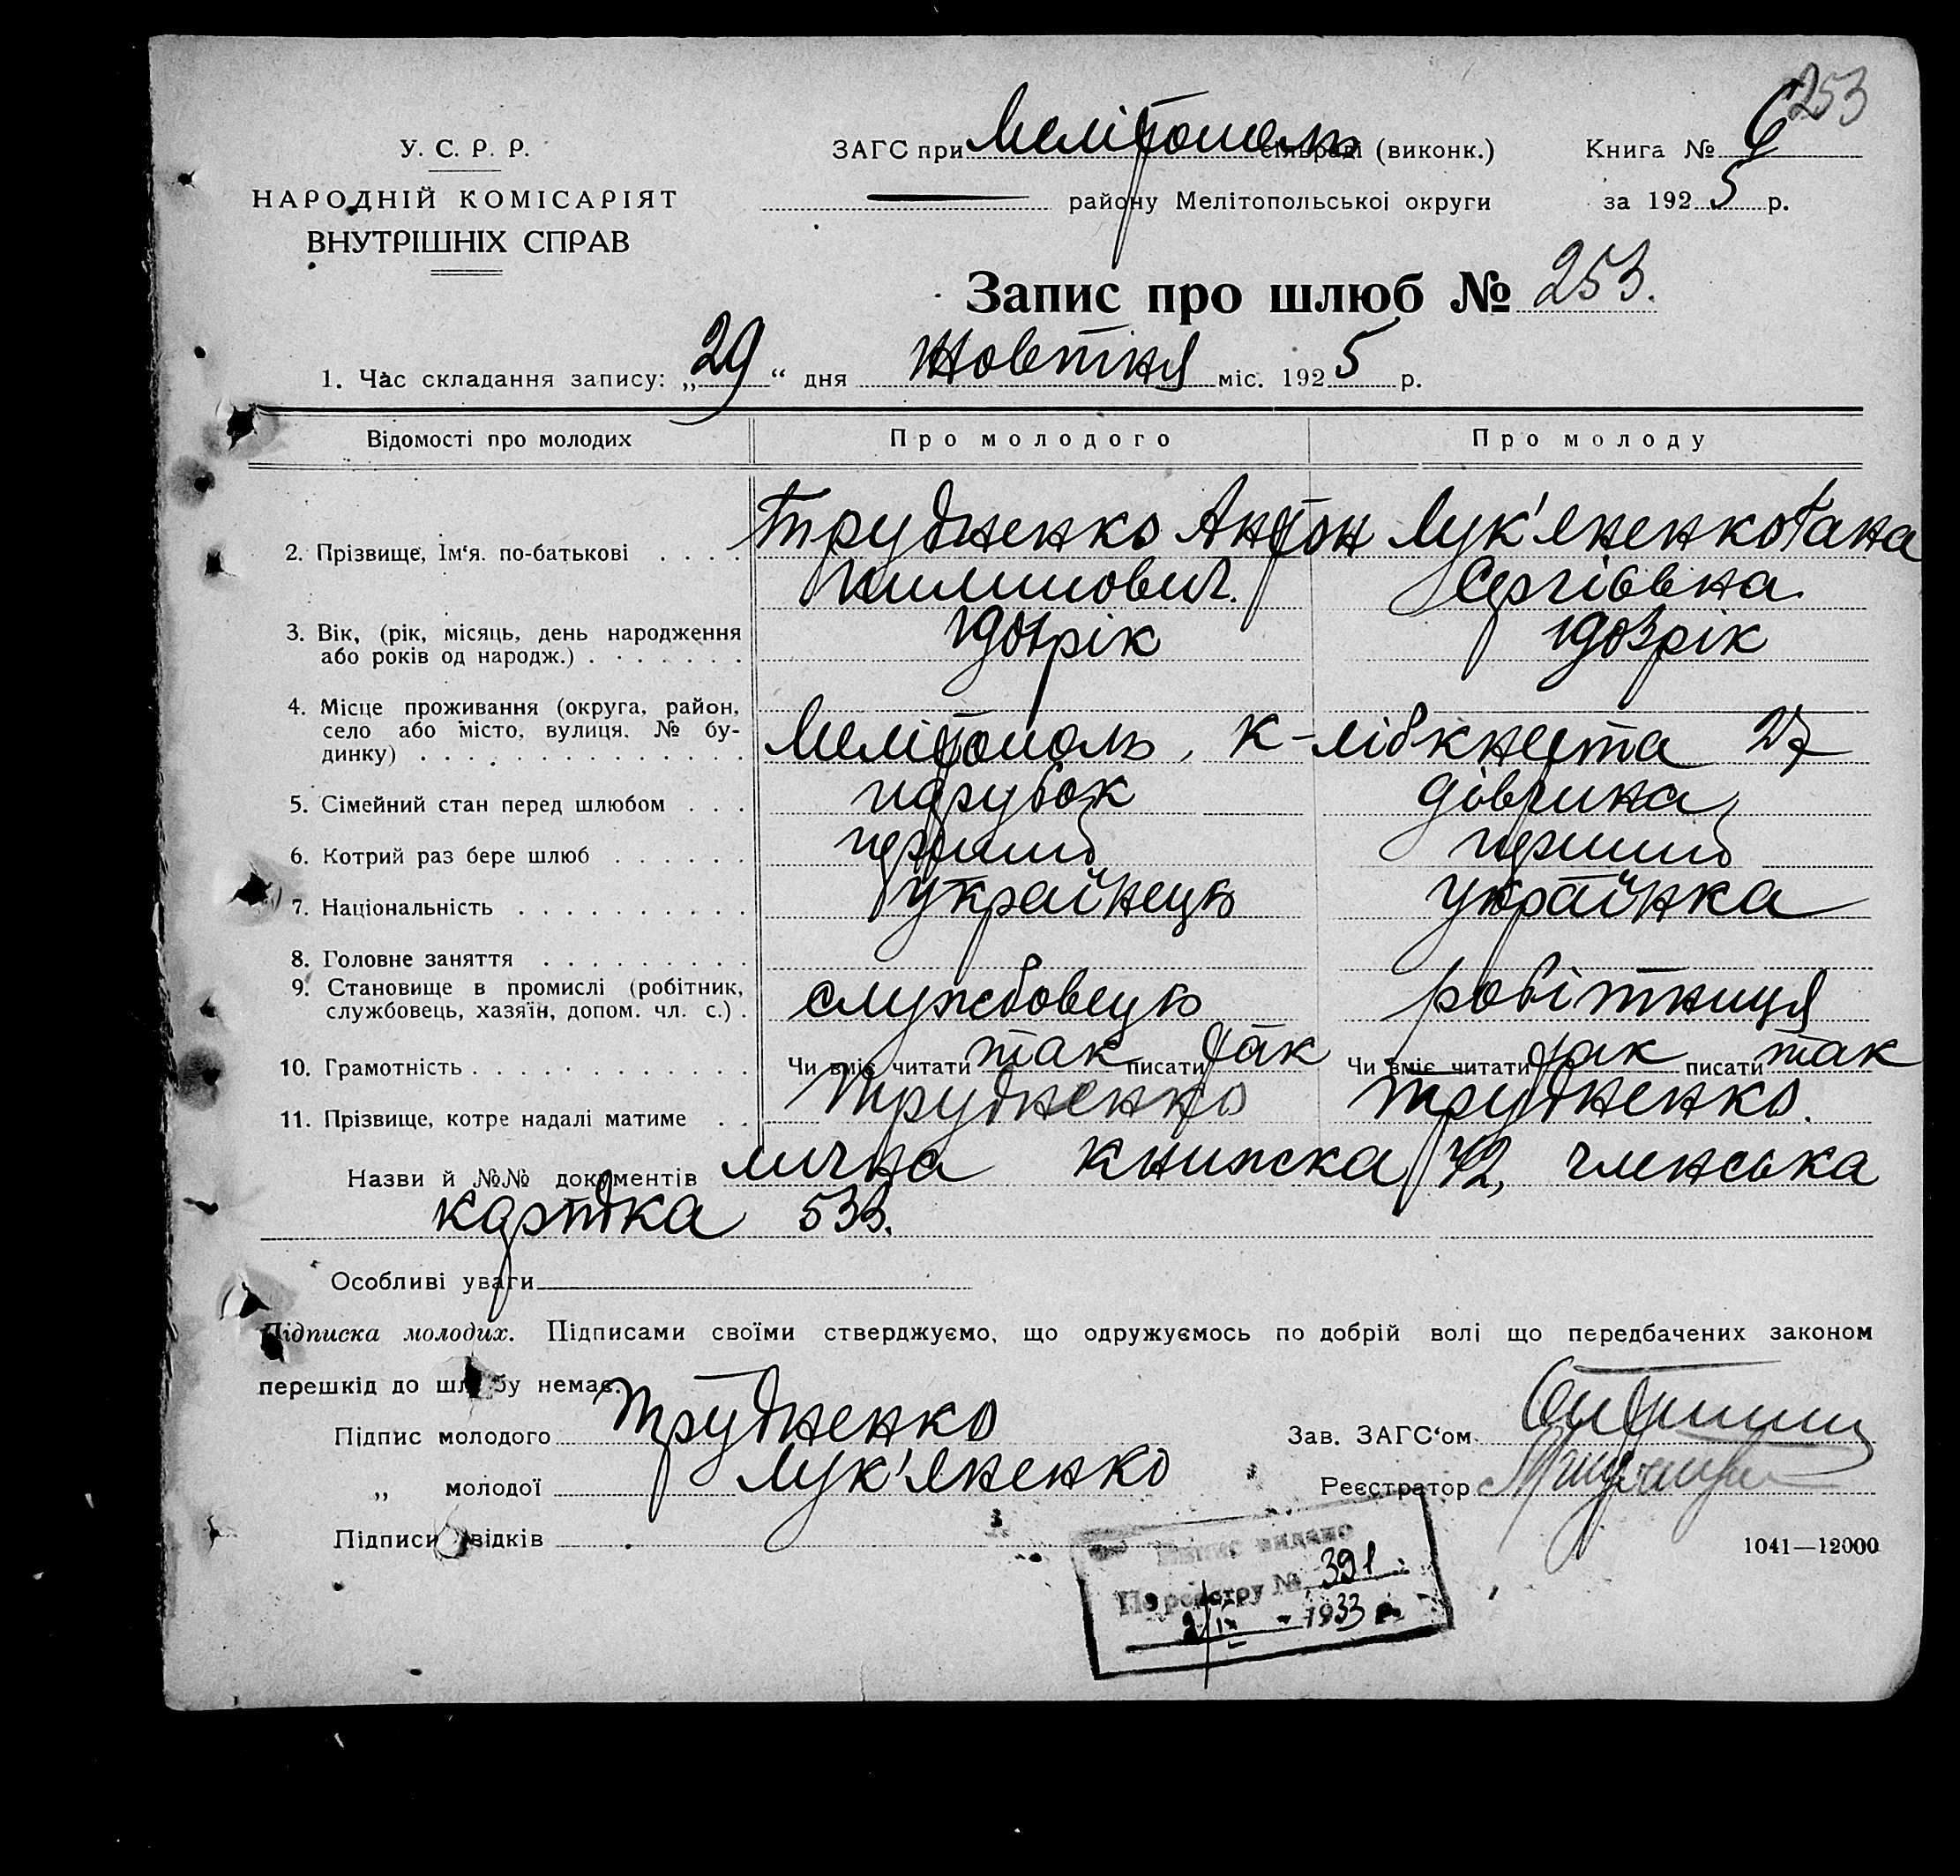 253
У. С. Р. Р.
НАРОДНІЙ КОМІСАРІЯТ
ВНУТРІШНІХ СПРАВ
ЗАГС при Мелітополь сільраді (виконк.)
району Мелітопольської округи
Книга № 6
за 1925 р.
Запис про шлюб № 253.
1. Час складання запису: „29“ дня Жовтня міс. 1925 р.
Відомості про молодих Про молодого Про молоду
2. Прізвище, Ім‘я. по-батькові . . . . Трудненко Антон Лук'яненко Гана
Пилипович. Сергіївна.
3. Вік, (рік, місяць, день народження рік 1903 рік
або років од народж.) . . . . . . .
4. Місце проживання (округа, район,
село або місто, вулиця. № бу-
динку) . . . . . . . . . . . . . . Мелітополь, К-лібкнехта 27
5. Сімейний стан перед шлюбом . . . парубок дівчина
6. Котрий раз бере шлюб . . . . . . перший перший
7. Національність . . . . . . . . . . українець українка
8. Головне заняття . . . . . . . . .
9. Становище в промислі (робітник,
службовець, хазяїн, допом. чл. с.) . службовець робітниця
10. Грамотність . . . . . . . . . . . . Чи вміє читати так писати так Чи вміє читати так писати так
11. Прізвище, котре надалі матиме . . Трудненко Трудненко.
Назви й №№ документів лична книжка 42, членська
картка 533.
Особливі уваги
Підписка молодих. Підписами своїми стверджуємо, що одружуємось по добрій волі що передбачених законом
перешкід до шлюбу немає.
Підпис молодого Трудненко Зав. ЗАГС‘ом
„ молодої Лук'яненко Реєстратор
Підписи свідків
1041—12000
видано
По реєстру № 391
2/IX - 1933 р.